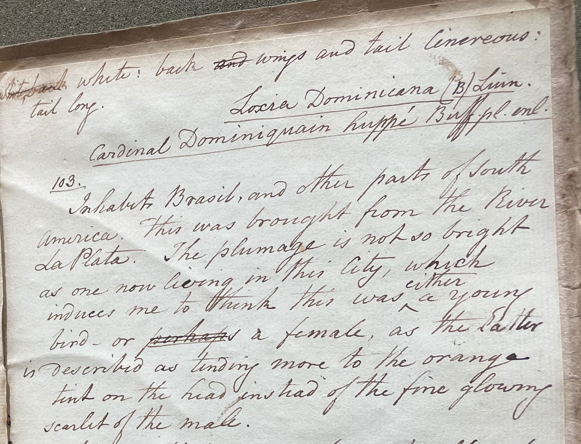 white: back and wings and tail Cinereous:
tail long.
Loxia Dominicana (B) Linn.
Cardinal Dominiquain huppé Buff pl. enl.
103.
Inhabits Brasil, and other parts of South
America. This was brought from the River
La Plata. The plumage is not so bright
as one now living in this City, which
induces me to think this was either a young
bird - or perhaps a female, as the latter
is described as tending more to the orange
tint on the head instead of the fine glowing
scarlet of the male.